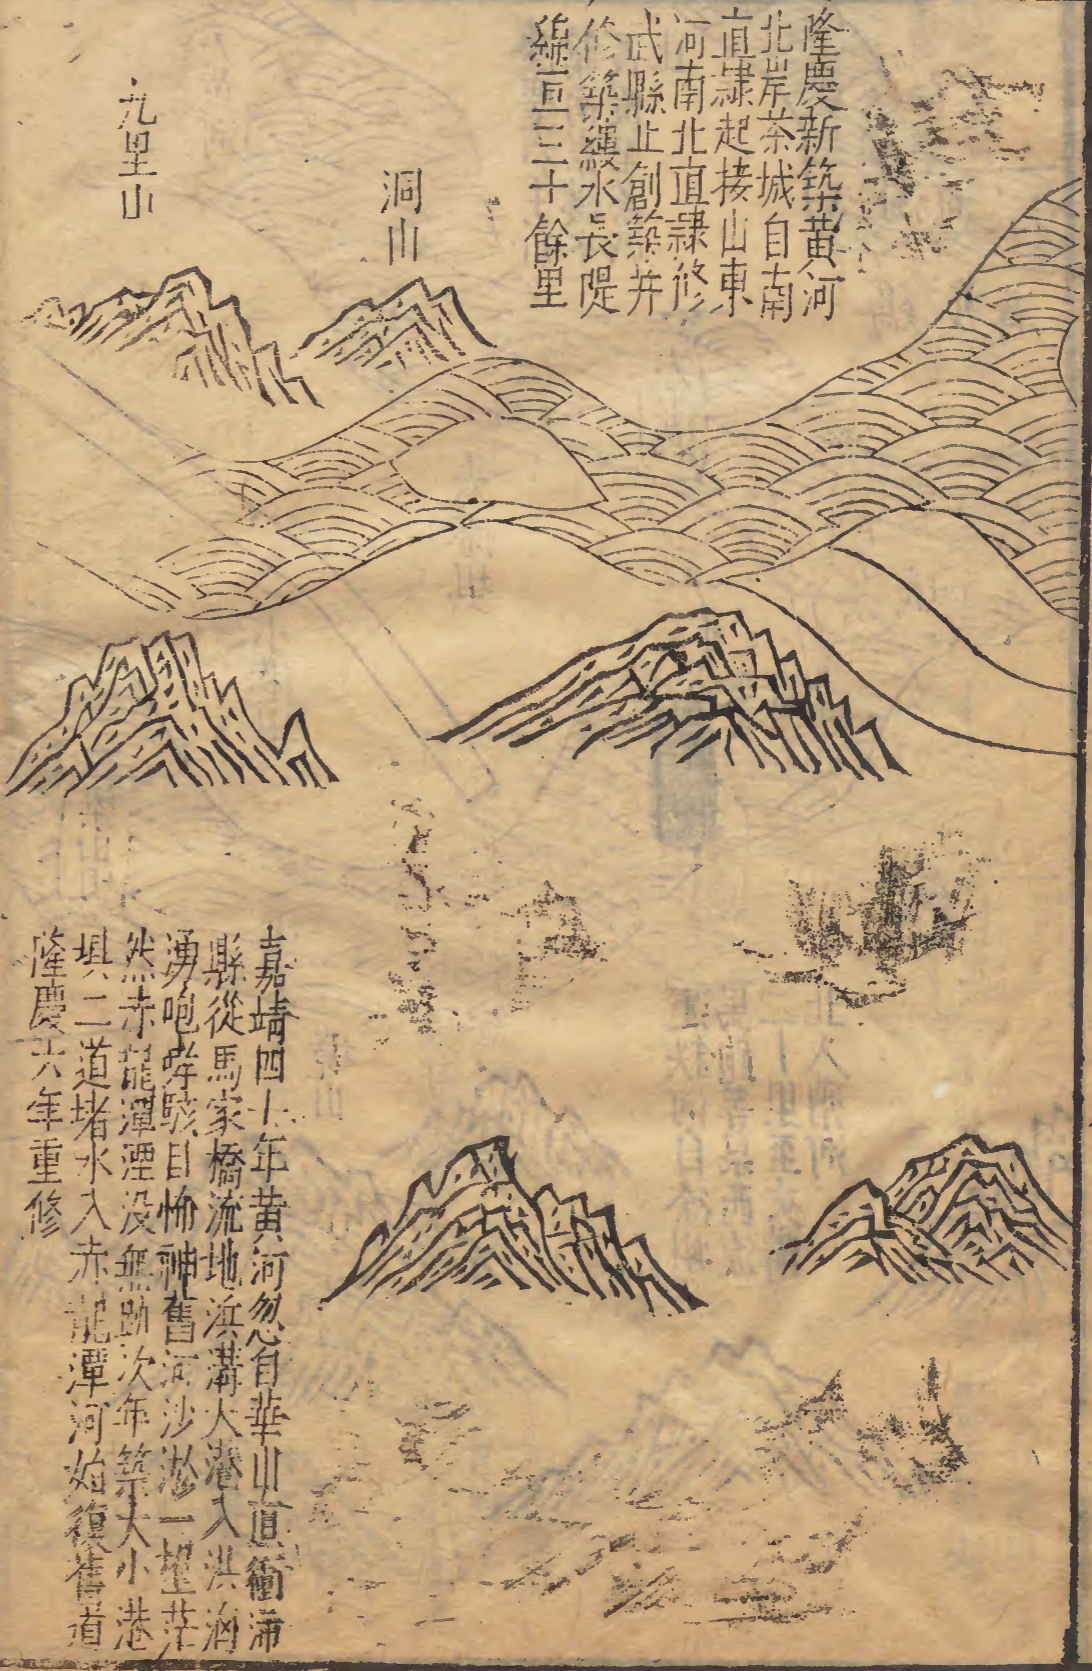 隆慶新築黄河
北岸茶城自南
直隷起接山東
河南北直隷修
武縣止創築并
修築縷水長隄
綿亘三十餘里
洞山
九里山
嘉靖四十年黄河忽自華山直衝沛
縣從馬家橋流地浜溝大港入洪洶
湧咆哮駭目怖神舊河沙淤一望茫
然赤龍潭湮没無跡次年築大小港
埧二道堵水入赤龍潭河始復舊道
隆慶六年重修